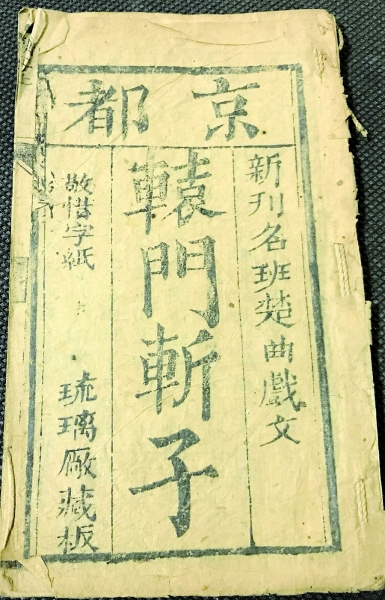 京都
新刊名班楚曲戲文
轅門斬子
敬惜字紙
琉璃厰藏板